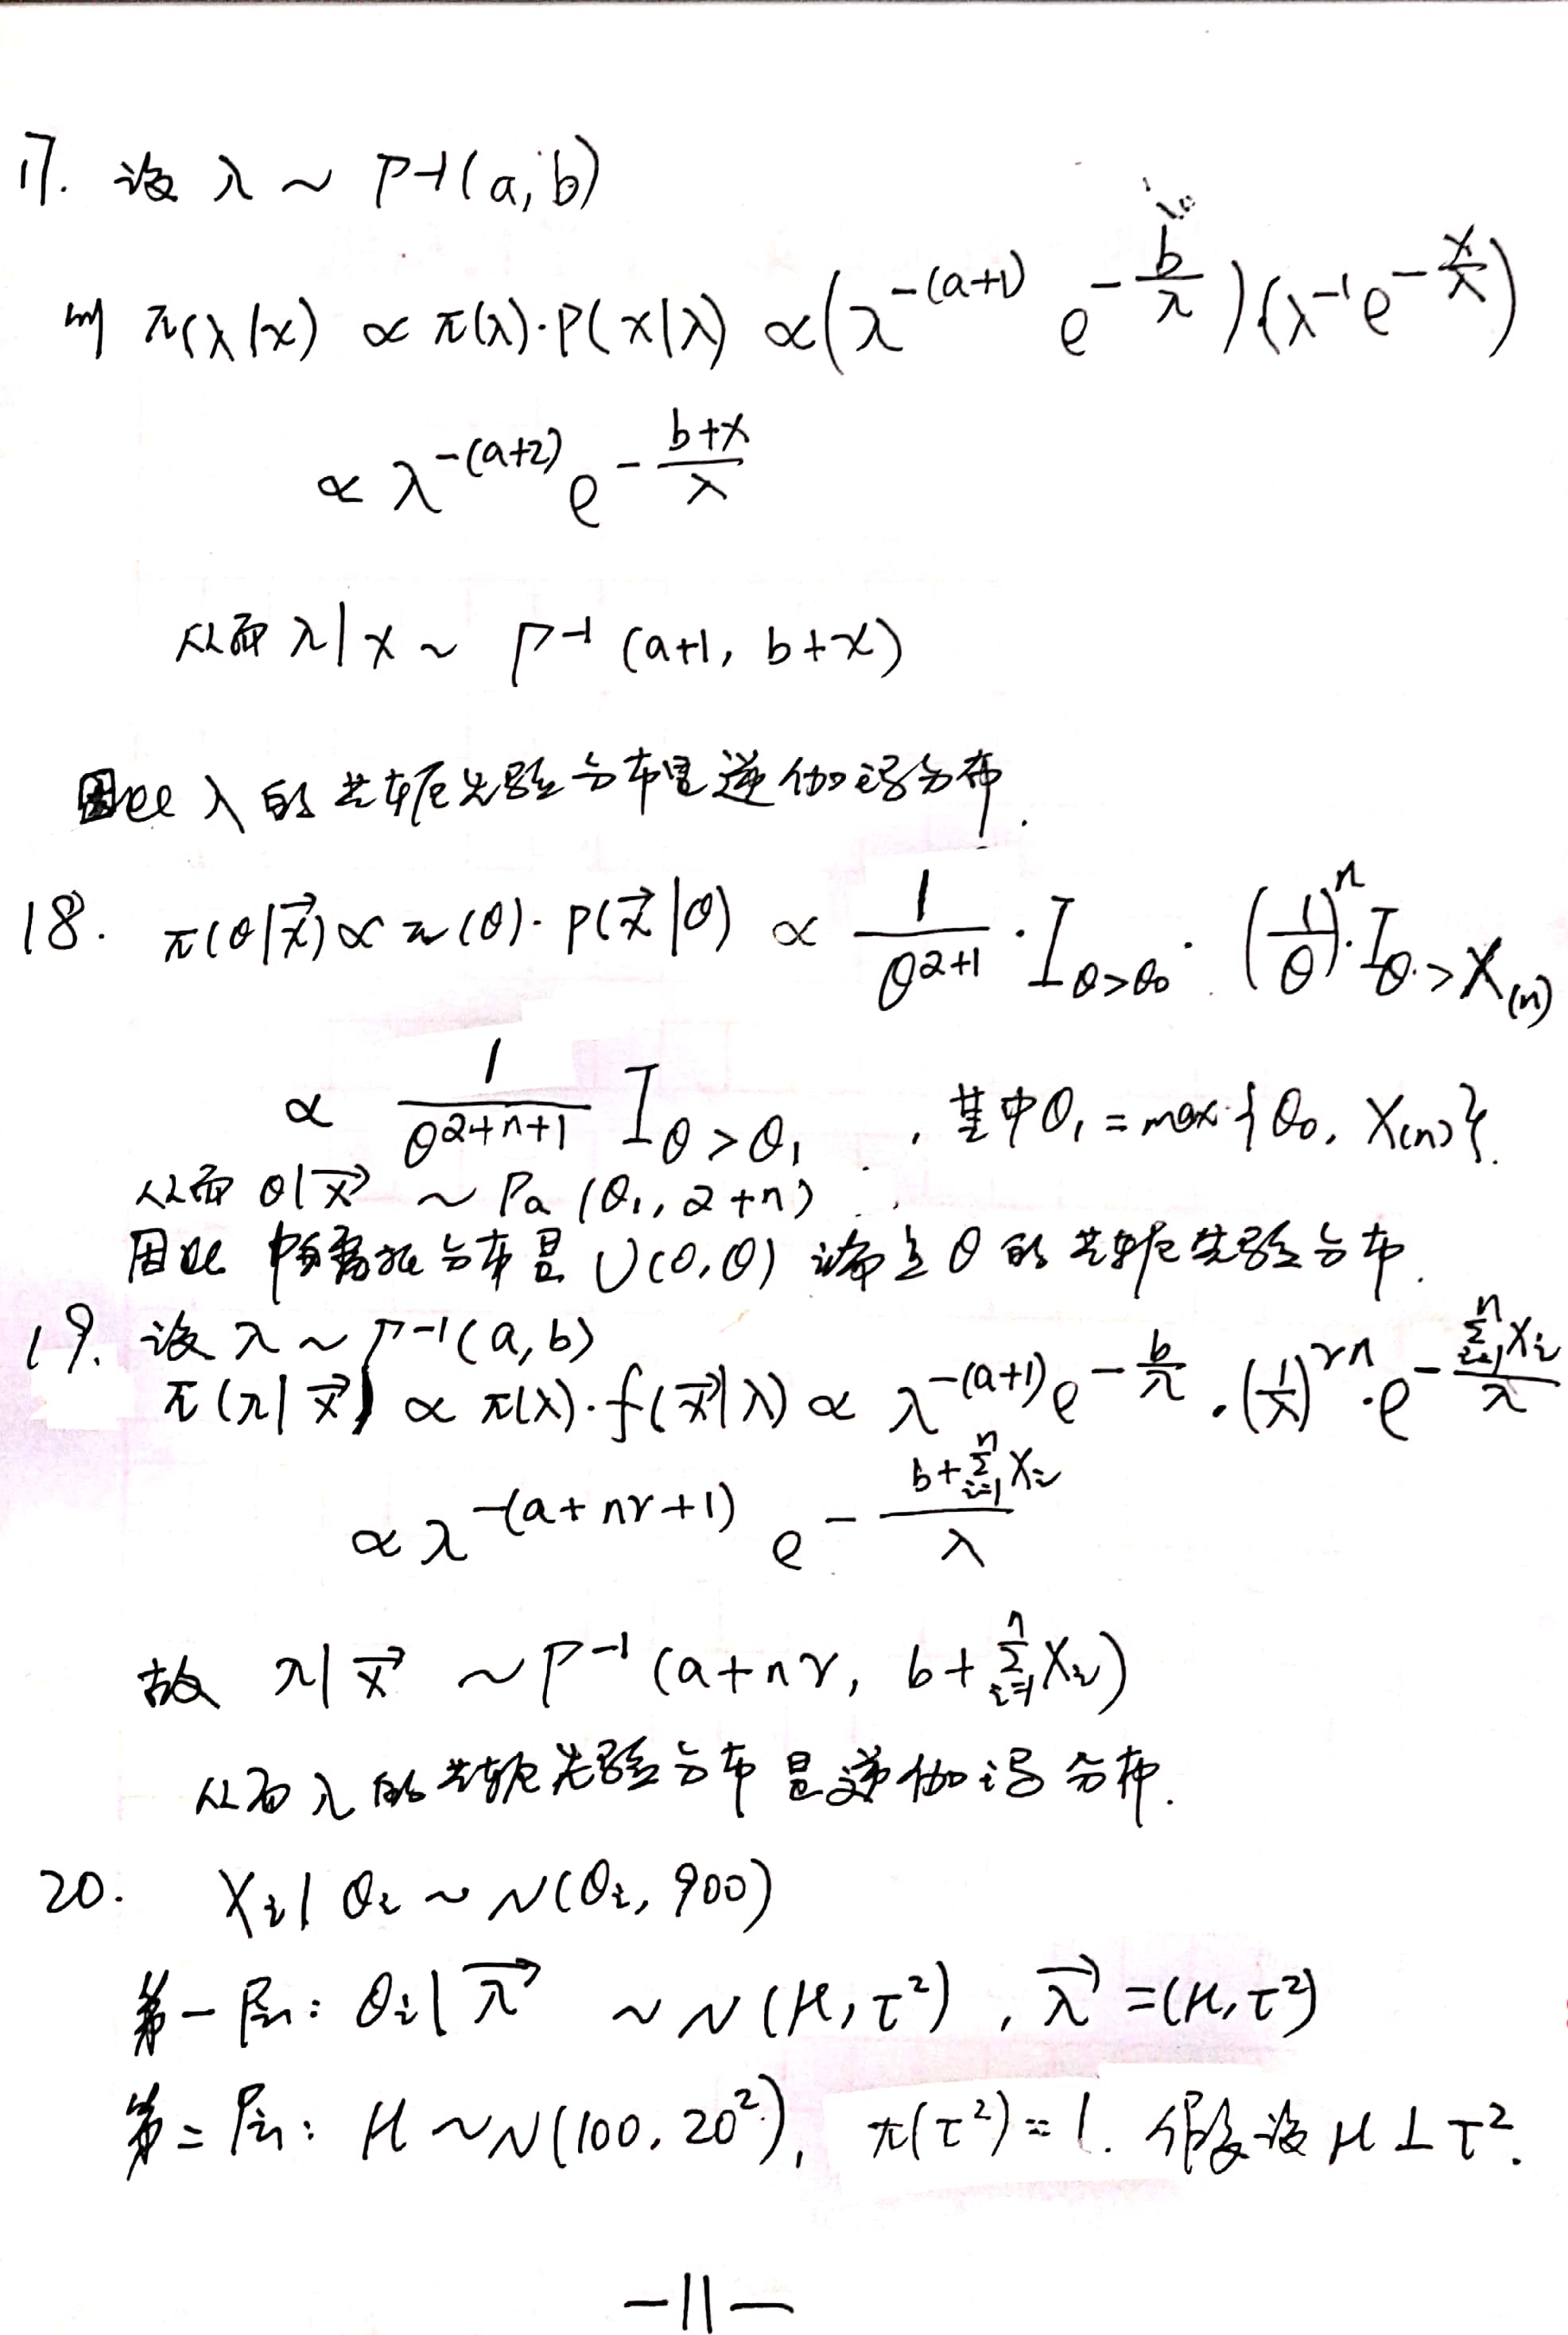 17. 设 λ ~ Γ⁻¹(a, b)
则 π(λ|x) ∝ π(λ)·P(x|λ) ∝ (λ^{-(a+1)} e^{-\frac{b}{λ}})·(λ^{-1} e^{-\frac{x}{λ}})
∝ λ^{-(a+2)} e^{-\frac{b+x}{λ}}
从而 λ|x ~ Γ⁻¹(a+1, b+x)
因此 λ 的共轭先验分布是逆伽玛分布.
18. π(θ|\vec{x}) ∝ π(θ)·P(\vec{x}|θ) ∝ \frac{1}{θ^{α+1}}·I_{θ>θ_0}·(\frac{1}{θ})^n·I_{θ>X_{(n)}}
∝ \frac{1}{θ^{α+n+1}} I_{θ>θ_1}, 其中θ_1 = max{θ_0, X_{(n)}}.
从而 θ|\vec{x} ~ Pa(θ_1, α+n)
因此 帕雷托分布是 U(0, θ) 端点 θ 的共轭先验分布.
19. 设 λ ~ Γ⁻¹(a, b)
π(λ|\vec{x}) ∝ π(λ)·f(\vec{x}|λ) ∝ λ^{-(a+1)} e^{-\frac{b}{λ}}·(\frac{1}{λ})^{rn}·e^{-\frac{\sum_{i=1}^{n} X_i}{λ}}
∝ λ^{-(a+nr+1)} e^{-\frac{b+\sum_{i=1}^{n} X_i}{λ}}
故 λ|\vec{x} ~ Γ⁻¹(a+nr, b+\sum_{i=1}^{n} X_i)
从而 λ 的共轭先验分布是逆伽玛分布.
20. X_i|θ_i ~ N(θ_i, 900)
第一层: θ_i|\vec{λ} ~ N(μ, τ²), \vec{λ} = (μ, τ²)
第二层: μ ~ N(100, 20²), π(τ²) = 1. 假设 μ ⊥ τ².
—11—